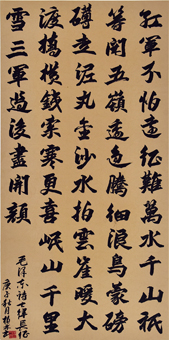 紅軍不怕遠征難萬水千山祇
等閑五嶺逶迤騰細浪烏蒙磅
礴走泥丸金沙水拍雲崖暖大
渡橋橫鐵索寒更喜岷山千里
雪三軍過後盡開顏
毛澤東詩七律長征
庚子秋月